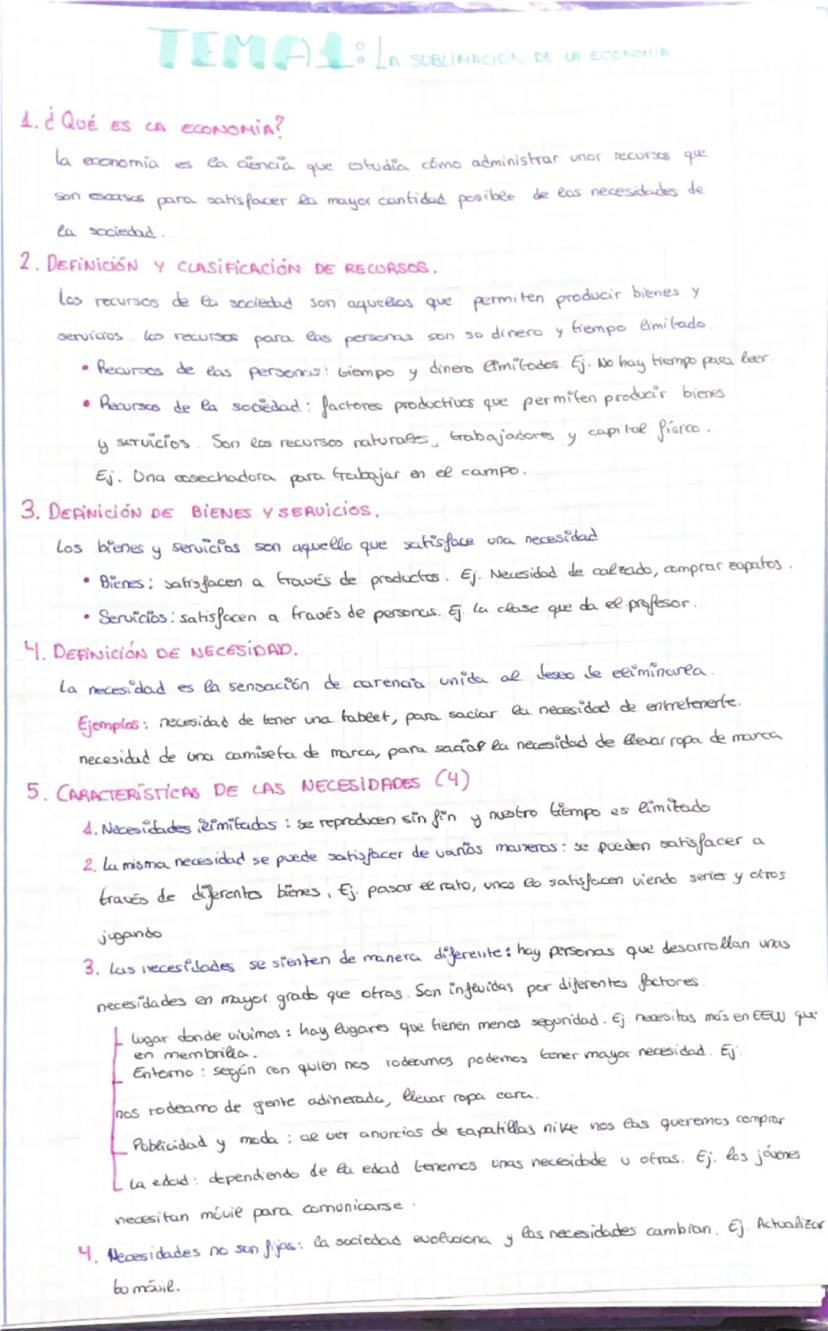 TEMA 1: LA SUBLIMACIÓN DE LA ECONOMIA
1. ¿QUÉ ES LA ECONOMÍA?
La economía es la ciencia que estudia cómo administrar unos recursos que
son escasos para satisfacer la mayor cantidad posible de las necesidades de
la sociedad.
2. DEFINICIÓN Y CLASIFICACIÓN DE RECURSOS.
Los recursos de la sociedad son aquellos que permiten producir bienes y
servicios. Los recursos para las personas son su dinero y tiempo limitado.
• Recursos de las personas: tiempo y dinero limitados. Ej. No hay tiempo para leer.
• Recursos de la sociedad: factores productivos que permiten producir bienes
y servicios. Son los recursos naturales, trabajadores y capital físico.
Ej. Una cosechadora para trabajar en el campo.
3. DEFINICIÓN DE BIENES Y SERVICIOS.
Los bienes y servicios son aquello que satisface una necesidad
• Bienes: satisfacen a través de productos. Ej. Necesidad de calzado, comprar zapatos.
• Servicios: satisfacen a través de personas. Ej. la clase que da el profesor.
4. DEFINICIÓN DE NECESIDAD.
La necesidad es la sensación de carencia unida al deseo de eliminarla.
Ejemplos: necesidad de tener una tablet, para saciar la necesidad de entretenerte.
necesidad de una camiseta de marca, para saciar la necesidad de llevar ropa de marca
5. CARACTERÍSTICAS DE LAS NECESIDADES (4)
1. Necesidades ilimitadas: se reproducen sin fin y nuestro tiempo es limitado
2. La misma necesidad se puede satisfacer de varias maneras: se pueden satisfacer a
través de diferentes bienes, Ej. pasar el rato, unos lo satisfacen viendo series y otros
jugando
3. Las necesidades se sienten de manera diferente: hay personas que desarrollan unas
necesidades en mayor grado que otras. Son infevidas por diferentes factores.
Lugar donde vivimos: hay lugares que tienen menos seguridad. Ej necesitas más en EEUU que
en membrilla.
Entorno: según con quien nos rodeamos podemos tener mayor necesidad. Ej.
nos rodeamo de gente adinerada, llevar ropa cara.
Publicidad y moda: al ver anuncios de zapatillas nike nos las queremos comprar
La edad: dependiendo de la edad tenemos unas necesidade u otras. Ej. los jóvenes
necesitan móvil para comunicarse.
4. Necesidades no son fijas: la sociedad evoluciona y las necesidades cambian. Ej. Actualizar
tu móvil.